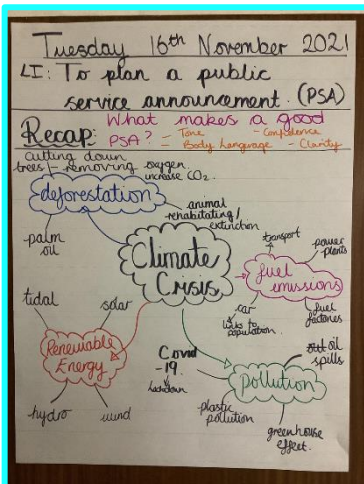 Tuesday 16th November 2021
LI: To plan a public
service announcement. (PSA)
Recap: What makes a good
PSA? - Tone - Confidence
- Body Language - Clarity
cutting down
trees - removing oxygen
increase CO₂.
deforestation
animal
rehabitating/
extinction
palm
oil
Climate
Crisis
transport
power
plants
fuel emissions
car
links to
population.
fuel
factories
tidal
solar
Renewable
Energy
hydro
wind
Covid
-19
Lockdown
oil
spills
pollution
plastic
pollution
greenhouse
effect.